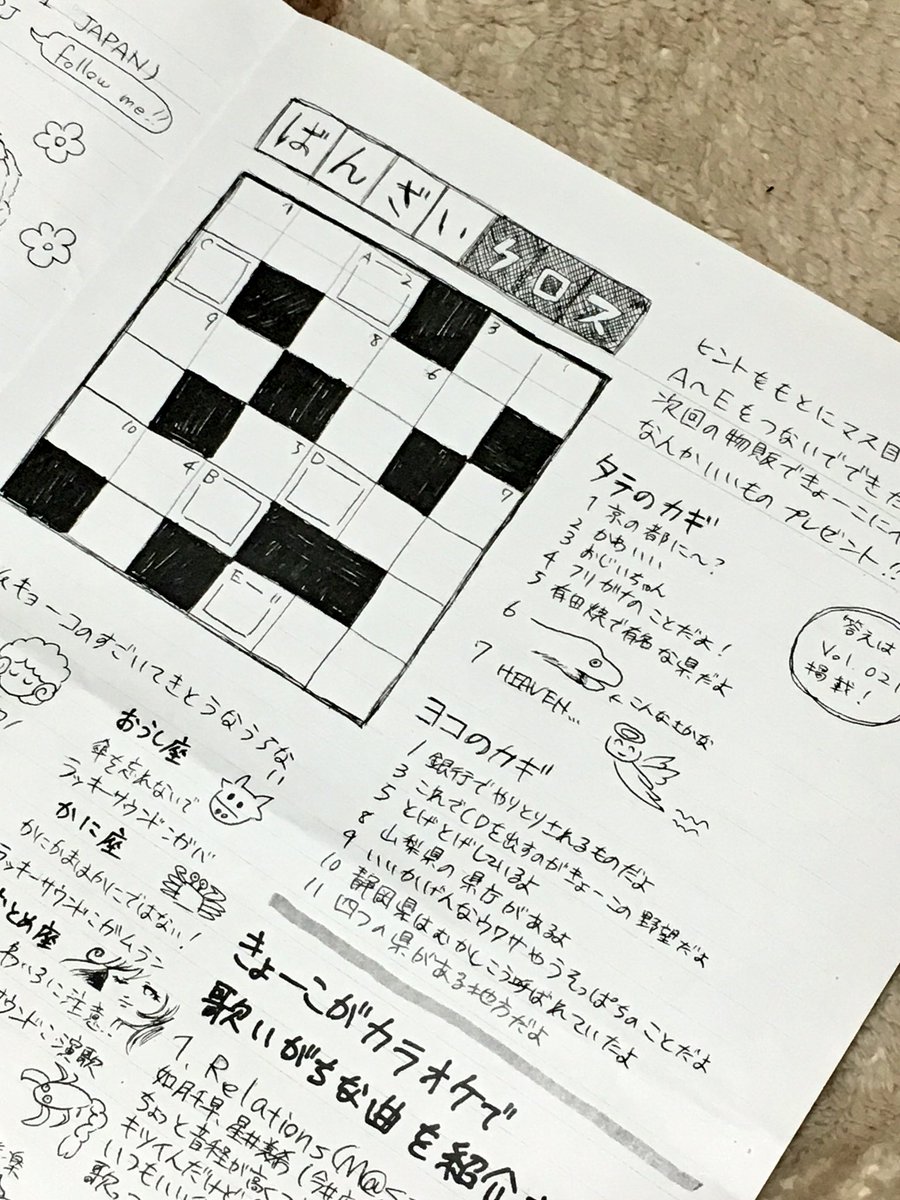 JAPAN)
follow me!!
ばんざいクロス
1
C
A 2
3
9
8
6
10
5 D
7
4 B
E 11
ヒントをもとにマス目
A〜Eをつないでできた
次回の物販できょーこに
なんかいいものプレゼント!!
タテのカギ
1 京の都に〜?
2 かわいい
3 おじいちゃん
4 フリガナのことだよ!
5 有田焼で有名な県だよ
6
←こんなさかな
7 HEAVEN…
答えは
Vol.02
掲載!
ヨコのカギ
1 銀行でやりとりされるものだよ
3 これでCDを出すのがきょーこの野望だよ
5 とげとげしているよ
8 山梨県の県庁があるよ
9 いいかげんなウワサやうそっぱちのことだよ
10 静岡県はむかしこう呼ばれていたよ
11 四つの県がある地方だよ
キョーコのすごいてきとうなうらない
おうし座
傘を忘れないで
ラッキーサウンドンガバ
かに座
かにかまはかにではない!
ラッキーサウンドンガムラン
とめ座
わいろに注意!!
サウンドン演歌
きょーこがカラオケで
歌いがちな曲を紹介
1. Relations(M@s
如月千早、星井美希
ちょっと音程が高く
キツイんだけど
いつもいい
歌っ